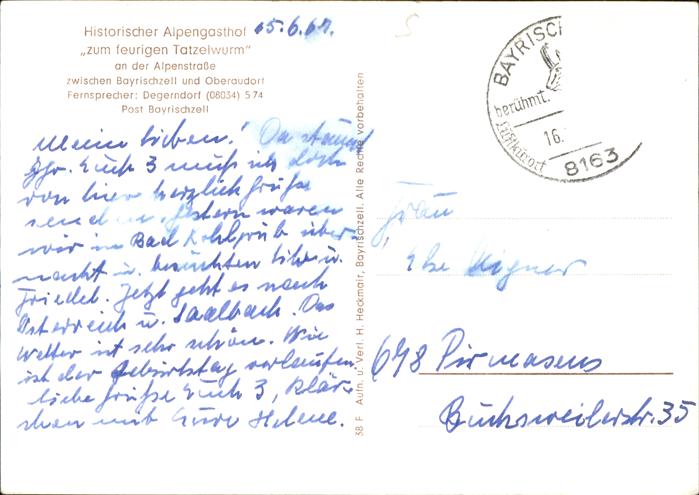 Historischer Alpengasthof 15.6.67.
„zum feurigen Tatzelwurm"
an der Alpenstraße
zwischen Bayrischzell und Oberaudorf
Fernsprecher: Degerndorf (08034) 574
Post Bayrischzell
Meine Lieben!
Euch 3 muß ich doch
von hier herzlich Grüße
senden. Gestern waren
wir in Bad Kohlgrub über-
nacht u. besuchten u.
Friedel. Jetzt geht es nach
Österreich u. Saalbach. Das
Wetter ist sehr schön. Wie
ist der Geburtstag verlaufen.
Liebe Grüße Euch 3, Klär-
chen mit Eure Helene.
38 F Aufn. u. Verl. H. Heckmair, Bayrischzell. Alle Rechte vorbehalten
BAYRISCH
berühmt.
Luftkurort
16.
8163
Frau
Else Aigner
678 Pirmasens
Buchsweilerstr. 35